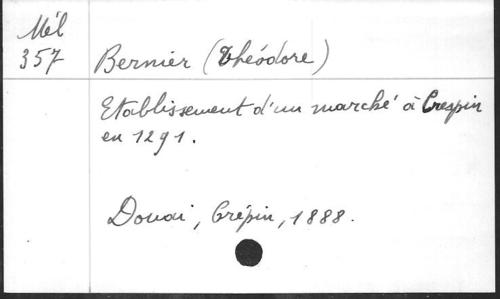 Mél
357
Bernier (Théodore)
Etablissement d'un marché à Crespin
en 1291.
Douai, Crépin, 1888.